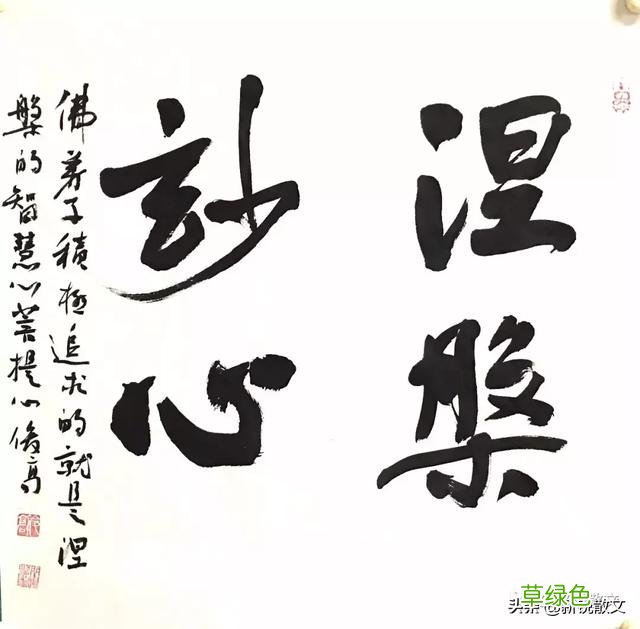 涅槃
玅心
佛弟子積極追求的就是涅
槃的智慧心菩提心
草绿色
头条 @新锐散文